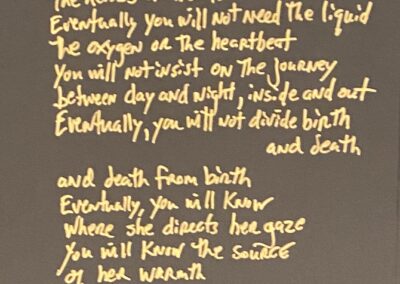 Eventually you will not need the liquid
The oxygen or the heartbeat
You will not insist on the journey
between day and night, inside and out
Eventually, you will not divide birth
and death
and death from birth
Eventually, you will know
where she directs her gaze
you will know the source
of her warmth